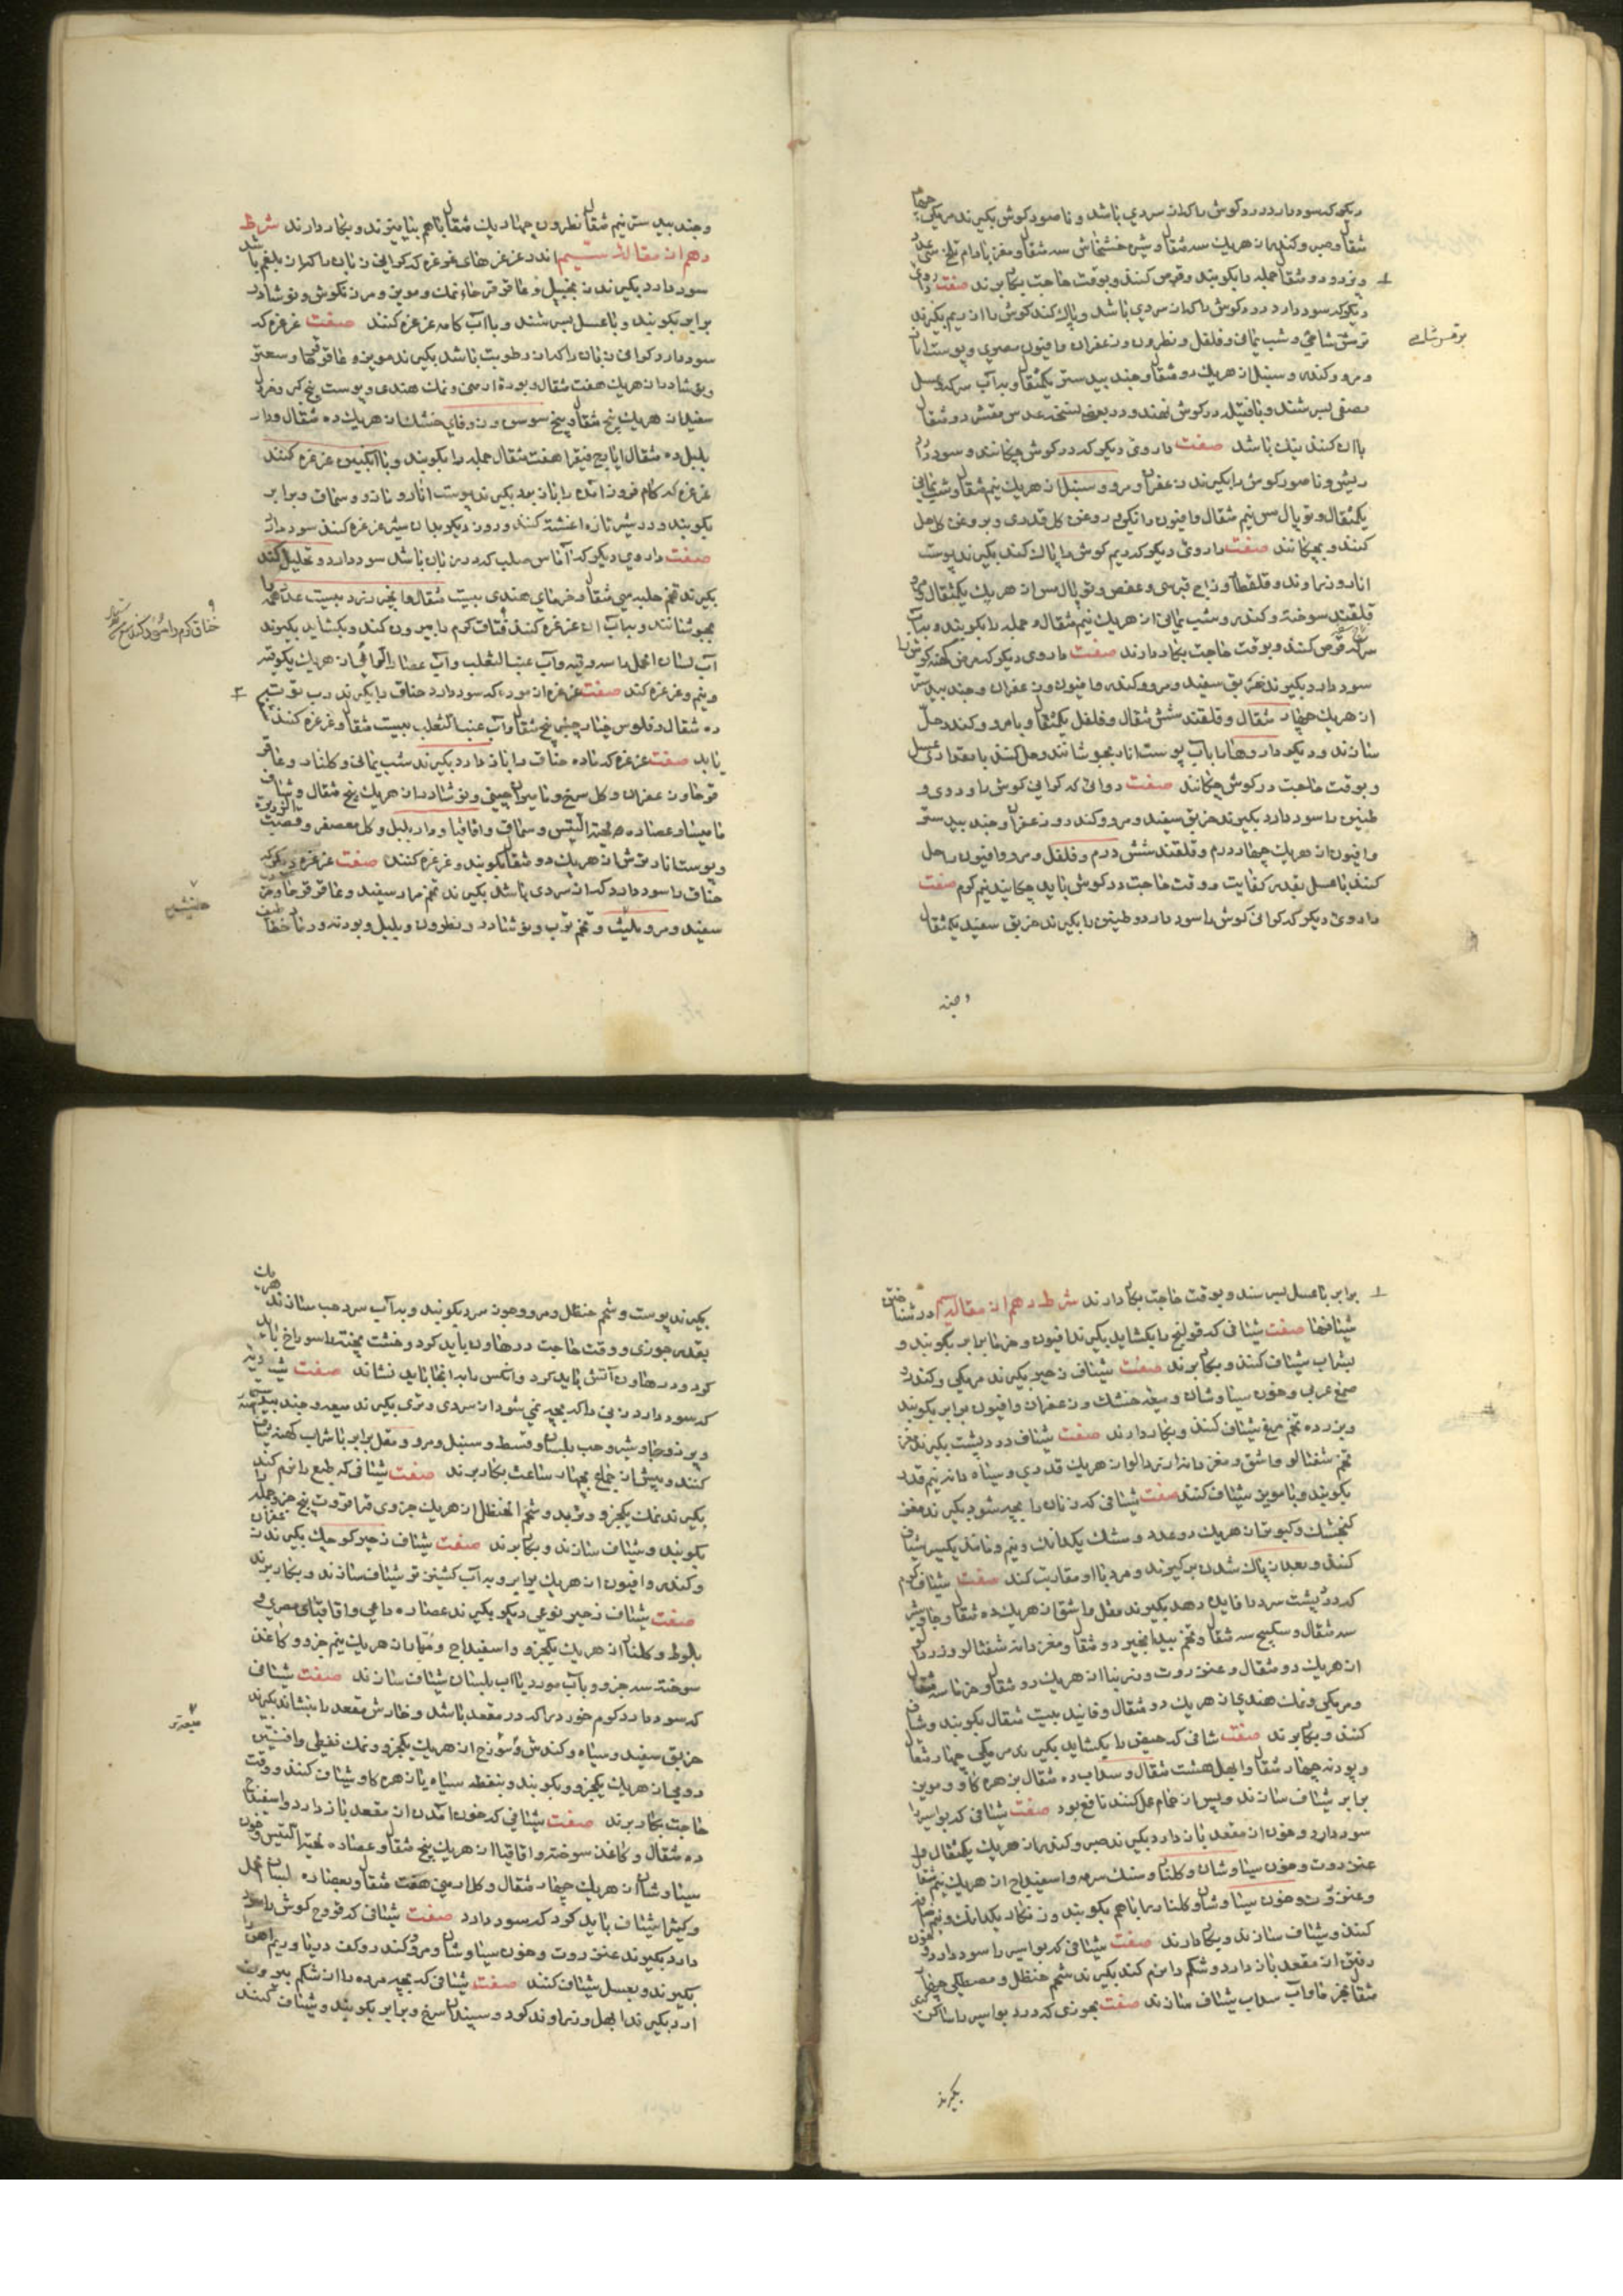 دیگر که سود دارد درد گوش را که از سردی باشد و ناصور گوش بگیرند مر مکی چهار
مثقال و صبر و کندر از هر یک سه مثقال و شیره خشخاش سه مثقال و مغز بادام تلخ
جمله را بکوبند و قرص کنند و بوقت حاجت بکار برند صفت داروی
دیگر که سود دارد درد گوش را که از سردی باشد و پاک کند گوش را از ریم بگیرند
و شب یمانی و فلفل و نطرون و زعفران و افیون مصری و پوست انار
و مر و کندر و سنبل از هر یک دو مثقال و جند بیدستر یکمثقال و به آب سرکه و عسل
مصفی بسرشند و با فتیله در گوش نهند و در بعضی نسخه عدس مقشر دو مثقال
با آن کنند نیک باشد صفت داروی دیگر که در گوش چکانند و سود دارد
ریش و ناصور گوش را بگیرند زعفران و مر و سنبل از هر یک نیم مثقال و شب یمانی
یکمثقال و توبال مس نیم مثقال و افیون دانگی و روغن گل قدری و بروغن گل حل
کنند و بچکانند صفت داروی دیگر که ریم گوش را پاک کند بگیرند پوست
انار و زراوند و قلقطار و زاج قبرسی و عفص و توبال مس از هر یک یکمثقال
قلقند سوخته و کندر و شب یمانی از هر یک نیم مثقال و جمله را بکوبند و به آب
سرکه قرص کنند و بوقت حاجت بکار دارند صفت داروی دیگر که مرض کهنه گوش را
سود دارد بگیرند خربق سفید و مر و کندر و افیون و زعفران و جند بیدستر
از هر یک چهار مثقال و قلقند شش مثقال و فلفل یکمثقال و با مر و کندر حل
سازند و دیگر داروها را با آب پوست انار بجوشانند و حل کنند با مقداری عسل
و بوقت حاجت در گوش چکانند صفت دوائی که گرانی گوش را و دوی و
طنین را سود دارد بگیرند خربق سفید و مر و کندر و زعفران و جند بیدستر
و افیون از هر یک چهار درم و قلقند شش درم و فلفل و مر و افیون را حل
کنند با عسل بقدر کفایت و وقت حاجت در گوش باید چکانید نیم گرم صفت
داروی دیگر که گرانی گوش را سود دارد و طنین را بگیرند خربق سفید یکمثقال
و جند
و جند بیدستر نیم مثقال نطرون چهار یک مثقال با هم بیامیزند و بکار دارند شرط
دهم از مقالت سیم اندر غرغرهای غرغره که گرانی زبان را که از بلغم باشد
سود دارد بگیرند زنجبیل و عاقرقرحا و نمک و مویز و مرزنگوش و نوشادر
برابر بکوبند و با عسل بسرشند و با آب کامه غرغره کنند صفت غرغره که
سود دارد گرانی زبان را که از رطوبت باشد بگیرند مویزه و عاقرقرحا و سعتر
و نوشادر از هر یک هفت مثقال و بوره ارمنی و نمک هندی و پوست بیخ کبر و خردل
سفید از هر یک پنج مثقال و بیخ سوسن و زوفای خشک از هر یک ده مثقال و دار
پلپل ده مثقال ایارج فیقرا هفت مثقال جمله را بکوبند و با انگبین غرغره کنند
غرغره که کام فرود آمده را باز برد بگیرند پوست انار و مازو و سماق برابر
بکوبند و در شیر تازه آغشته کنند و روز دیگر بدان شیر غرغره کنند سود دارد
صفت داروی دیگر که آماس صلب که در زبان باشد سود دارد و تحلیل کند
بگیرند تخم حلبه سی مثقال و خرمای هندی بیست مثقال و انجیر زرد بیست عدد همه را
بجوشانند و به آب آن غرغره کنند خناق گرم را بیرون کند و بگشاید بگیرند
آب لسان الحمل را سه وقیه و آب عنب الثعلب و آب عصا الراعی از هر یک یکوقیه
و نیم و غرغره کنند صفت غرغره از موده که سود دارد خناق را بگیرند رب توت نیم
ده مثقال و فلوس خیار چنبر پنج مثقال و آب عنب الثعلب بیست مثقال و غرغره کنند
صفت غرغره که ماده خناق را باز دارد بگیرند شب یمانی و کلنار و عاقر
قرحا و زعفران و گل سرخ و مامیران چینی و نوشادر از هر یک پنج مثقال و شیاف
مامیثا و عصاره لحیة التیس و سماق و اقاقیا و دار پلپل و گل معصفر و قصب الذریره
و پوست انار ترش از هر یک دو مثقال بکوبند و غرغره کنند صفت غرغره دیگر که
خناق را سود دارد که از سردی باشد بگیرند تخم مار سفید و عاقرقرحا و خردل
سفید و مرو و تخم ترب و نوشادر و نطرون و پلپل و بودنه و
برابر با عسل بسرشند و بوقت حاجت بکار دارند شرط دهم از مقالت سیم در شناختن
شیافها صفت شیافی که قولنج را بگشاید بگیرند افیون و خرما برابر بکوبند و
بشراب شیاف کنند و بکار برند صفت شیاف زحیر بگیرند مر مکی و کندر
صمغ عربی و خون سیاوشان و میعه خشک و زعفران و افیون برابر بکوبند
و بزرده تخم مرغ شیاف کنند و بکار دارند صفت شیاف درد پشت بگیرند مغز
تخم شفتالو و اشق و مغز دانه زردالو از هر یک قدری و سیاه دانه نیم قدر
بکوبند و با مویز شیاف کنند صفت شیافی که زنان را بچه شود بگیرند مغز
گنجشک و کبوتر از هر یک دو عدد و مشک یکدانگ و نیم
کنند و بعد از پاک شدن برگیرند و مرد با او مقاربت کند صفت شیاف گرم
که درد پشت سرد را فایده دهد بگیرند مقل و اشق از هر یک ده مثقال و جاوشیر
سه مثقال و سکبینج سه مثقال و تخم بیدانجیر دو مثقال و مغز دانه شفتالو و زردالو
از هر یک دو مثقال و عنزروت و زرنباد از هر یک دو مثقال و خرما سه مثقال
و مر مکی و نمک هندی از هر یک دو مثقال و فانید بیست مثقال بکوبند و شیاف
کنند و بکار برند صفت شیافی که حیض را بگشاید بگیرند مر مکی چهار مثقال
و پودنه چهار مثقال و ابهل هشت مثقال و سداب ده مثقال بزهره گاو و مویز
برابر شیاف سازند و پس از حمام عمل کنند نافع بود صفت شیافی که بواسیر را
سود دارد و خون از مقعد باز دارد بگیرند صبر و کندر از هر یک یکمثقال
عنزروت و خون سیاوشان و کلنار و سنگ سرمه و اسفیداج از هر یک نیم مثقال
و عنزروت و خون سیاوشان و کلنار را با هم بکوبند و زنگار یکدانگ و نیم
کنند و شیاف سازند و بکار دارند صفت شیافی که بواسیر را سود دارد و خون
رفتن از مقعد باز دارد و شکم را نرم کند بگیرند شحم حنظل و مصطکی چهار
مثقال و آب سداب شیاف سازند صفت بخوری که درد بواسیر را ساکن
بگیرند
بگیرند پوست و شحم حنظل و مر و وهون سرد بکوبند و به آب سرد حب سازند هر یک
بقدر جوزی و وقت حاجت در هاون باید کرد و خشت پخته را سوراخ باید
کرد و در هاون آتش باید کرد و آنکس را بر آنجا باید نشاند صفت
که سود دارد زنی را که بچه نمی شود از سردی و تری بگیرند میعه و جند بیدستر
و حب بلسان و قسط و سنبل و مر و مقل برابر با شراب کهنه شیاف
کنند و پیش از جماع بچهار ساعت بکار برند صفت شیافی که طبع را نرم کند
بگیرند نمک یکجزو و تربد و شحم الحنظل از هر یک جزوی پنج جزو جمله را
بکوبند و شیاف سازند و بکار برند صفت شیاف زحیر کوچک بگیرند زعفران
و کندر و افیون از هر یک برابر و به آب گشنیز تر شیاف سازند و بکار برند
صفت شیاف زحیر نوعی دیگر بگیرند عصاره راعی و اقاقیای مصری و
بلوط و کلنار از هر یک یکجزو و اسفیداج از هر یک نیم جزو و کاغذ
سوخته سه جزو و به آب مورد یا آب بلسان شیاف سازند صفت شیافی
که سود دارد کرم خورد را که در مقعد باشد و خارش مقعد را بنشاند بگیرند
خربق سفید و سیاه و کندش و از هر یک یکجزو و نمک نفطی و افسنتین
رومی از هر یک یکجزو و بکوبند و بنفط سیاه یا زهره گاو شیاف کنند و وقت
حاجت بکار برند صفت شیافی که خون آمدن از مقعد باز دارد و اسفیداج
ده مثقال و کاغذ سوخته و اقاقیا از هر یک پنج مثقال و عصاره لحیة التیس و خون
سیاوشان از هر یک چهار مثقال و گل ارمنی هفت مثقال و بعصاره لسان الحمل
و کتیرا شیاف باید کرد که سود دارد صفت شیاف که قروح گوش را سود
دارد بگیرند عنزروت و خون سیاوشان و مر و کندر و کف دریا و ریم آهن
بگیرند و بعسل شیاف کنند صفت شیافی که بچه مرده را از شکم بیرون
آرد بگیرند ابهل و زراوند گرد و سپندان سرخ و برابر بکوبند و شیاف کنند